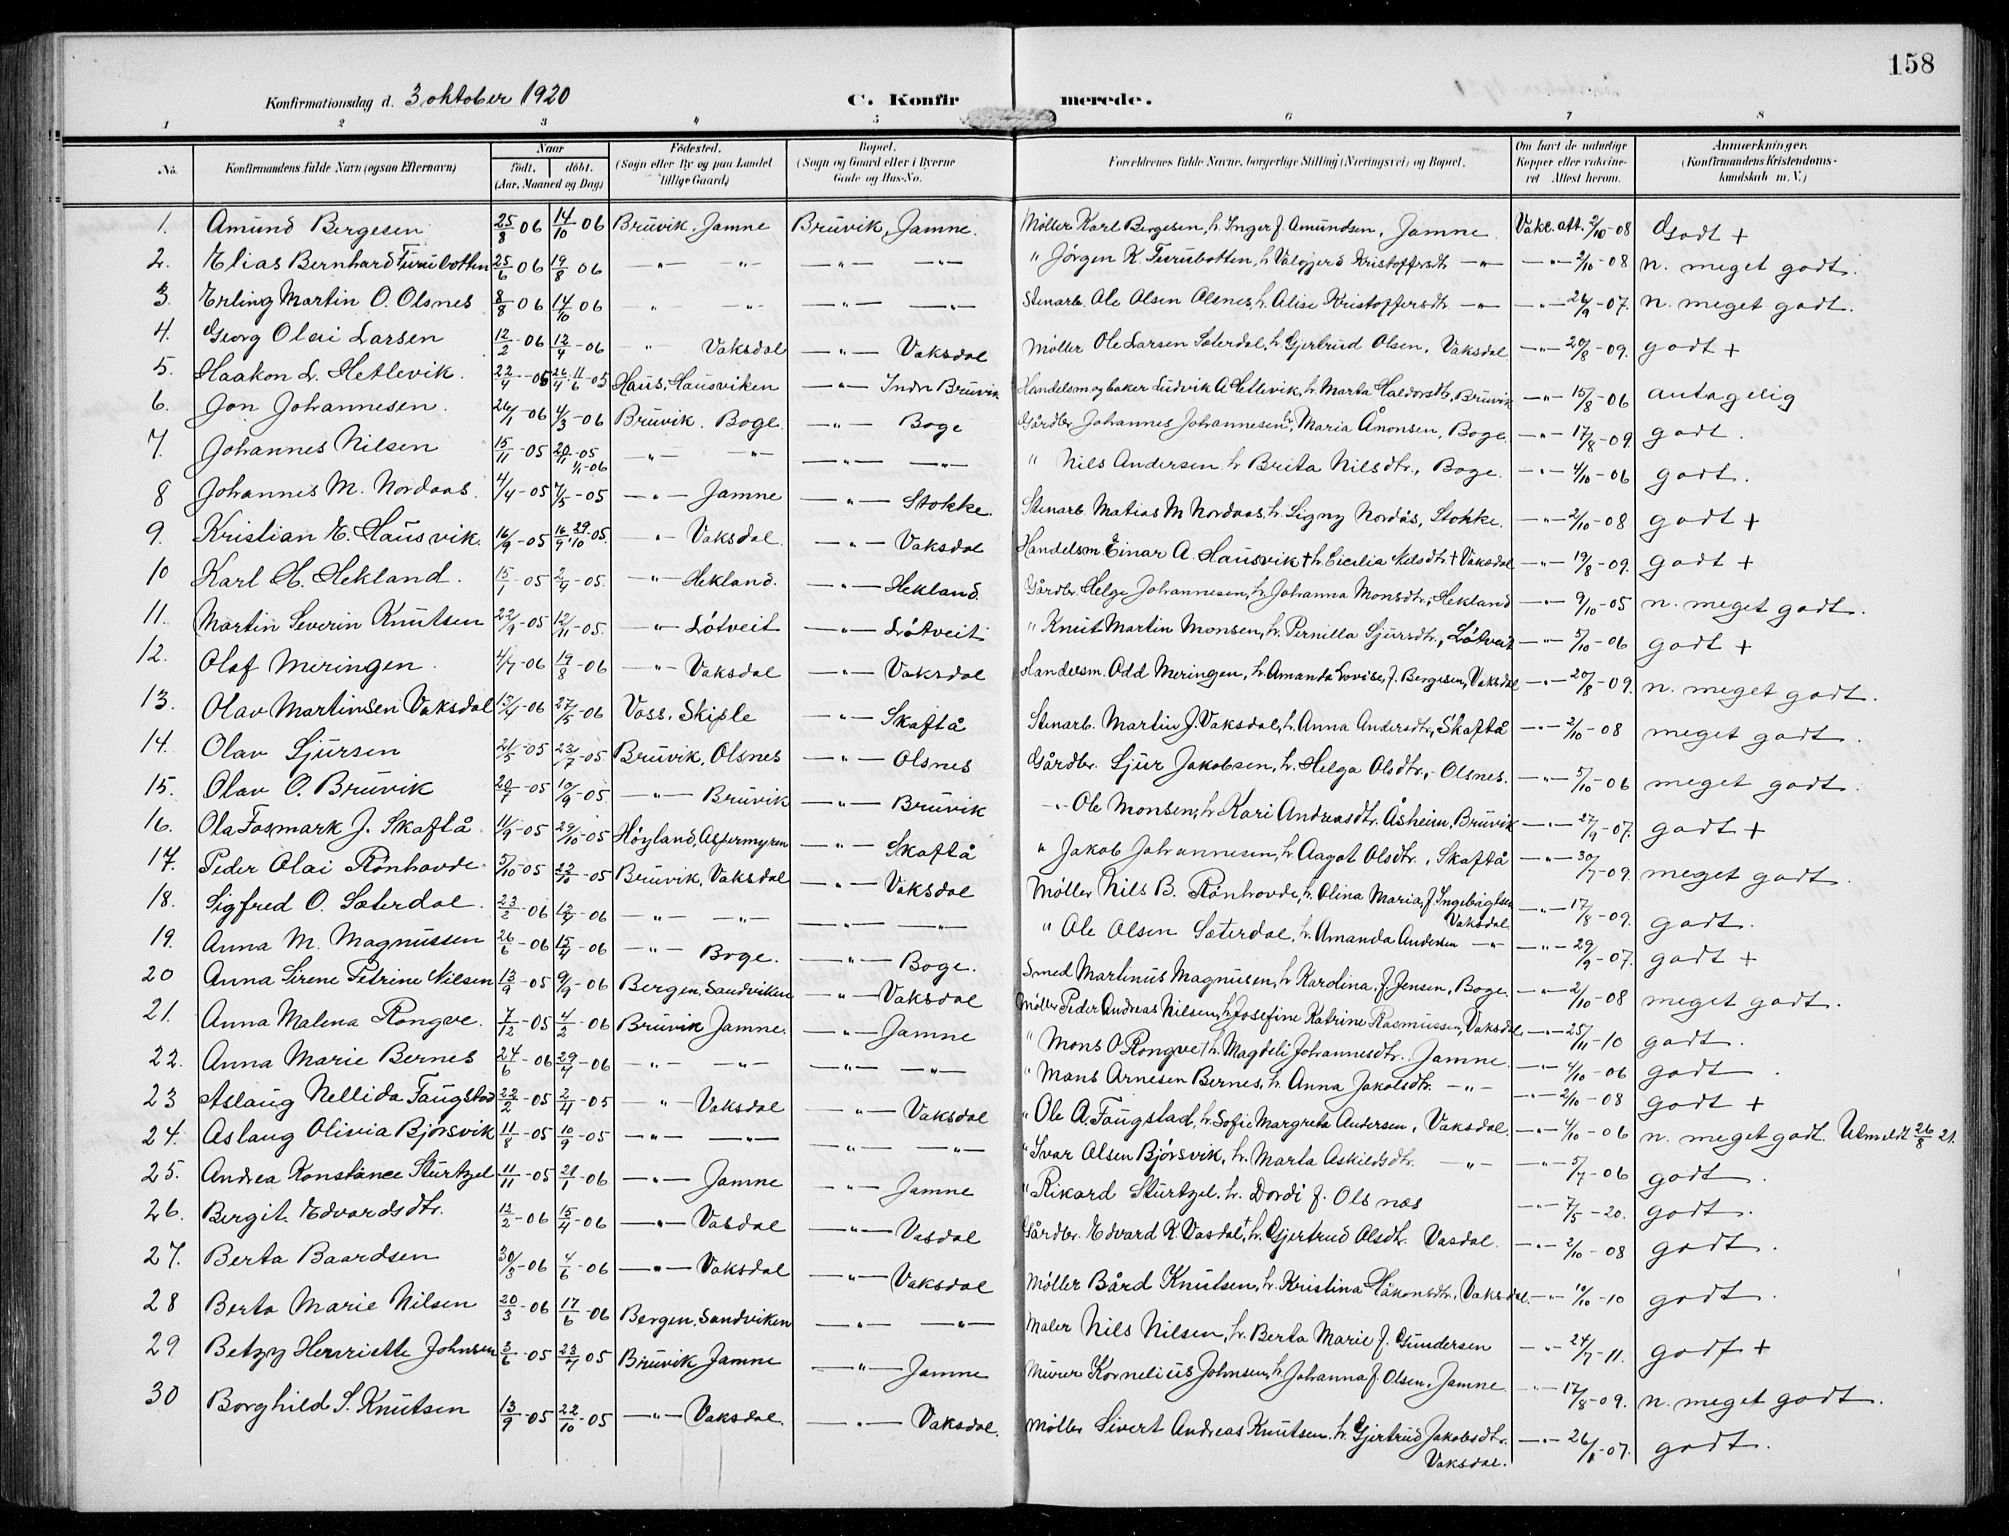 158
Konfirmationsdag d. 3 oktober 1920 C. Konfirmerede.
1 2 3 " 5 6 7 8
No. Konfirmandens fulde Navn (ogsaa Efternavn) Naar født. døbt. (Aar, Maaned og Dag) Fødested. (Sogn eller By og paa Landet tillige Gaard) Bopæl. (Sogn og Gaard eller i Byerne Gade og Hus-No. Forældrenes fulde Navne, borgerlige Stilling (Næringsvei) og Bopæl. Om havt de naturlige Kopper eller vakcineret Attest herom. Anmærkninger. (Konfirmandens Kristendomskundskab m. V.)
1. Amund Bergesen 25/8 06 14/10 06 Bruvik, Jamne Bruvik, Jamne. Møller Karl Bergesen, h. Inger f. Amundsen, Jamne. Vakc. att. 2/10-08 Godt +
2. Elias Bernhard Furubotten 25/6 06 19/8 06 —"— —"— —"— —"— " Jørgen K. Furubotten, h. Valgjerd Kristoffersdtr. —"— —"— 2/10-08 n. meget godt.
3. Erling Martin O. Olsnes 8/8 06 14/10 06 " —"— —"— —"— Stenarb. Ole Olsen Olsnes, h. Alise Kristoffersdtr. —"— —"— 26/9-07. n. meget godt.
4. Georg Olai Larsen 12/2-06 12/4-06 —"— Vaksdal —"— Vaksdal Møller Ole Larsen Sæterdal, h. Gjertrud Olsen, Vaksdal —"— 20/8-09. godt +
5. Haakon L. Hetlevik. 22/4-05 26/4 11/6-05 Haus, Hausviken —"— Indre Bruvik Handelsm og baker Ludvik A Hetlevik, h. Marta Haldorsdtr, Bruvik —"— 15/8-06 antagelig
6. Jon Johannesen. 26/1-06 4/3-06 Bruvik. Boge. —"— Boge Gårdbr. Johannes Johannesen h. Maria Ånonsen, Boge. —"— 17/8-09. godt.
7. Johannes Nilsen 15/11-05 20/11-05 1/1-06 —"— —"— —"— —"— " Nils Andersen h. Brita Nilsdtr., Boge. —"— 4/10-06 godt.
8 Johannes M. Nordaas. 4/4-05 7/5-05 —"— Jamne —"— Stokke Stenarb. Matias M Nordaas, h. Signy Nordås, Stokke. —"— 2/10-08 godt +
9. Kristian E. Hausvik. 16/9-05 16/9 29/10-05. —"— Vaksdal —"— Vaksdal Handelsm. Einar A. Hausvik + h. Cecilia Nilsdtr + Vaksdal —"— 19/8-09. godt +
10 Karl H. Hekland. 15/1-05 2/4-05. —"— Hekland. —"— Hekland. Gårdbr. Helge Johannesen, h. Johanna Monsdtr., Hekland —"— 9/10-05 n. meget godt.
11. Martin Severin Knutsen 22/9-05 12/11-05. —"— Løtveit —"— Løtveit " Knut Martin Monsen, h. Pernilla Sjursdtr., Løtveit —"— 5/10-06 godt +
12. Olaf Meringen. 4/7-06 19/8-06 —"— Vaksdal —"— Vaksdal Handelsm. Odd Meringen, h. Amanda Lovise, f. Bergesen, Vaksdal —"— 20/8-09. n. meget godt.
13. Olav Martinsen Vaksdal 13/4-06 27/5-06 Voss, Skiple —"— Skaftå Stenarb. Martin J. Vaksdal, h. Anna Andersdtr, Skaftå —"— 2/10-08 meget godt.
14. Olav Sjursen 21/5-05 23/7-05. Bruvik, Olsnes —"— Olsnes Gårdbr. Sjur Jakobsen, h. Helga Olsdtr., Olsnes. —"— 5/10-06 meget godt.
15. Olav O. Bruvik 20/7-05 10/9-05. —"— Bruvik —"— Bruvik —"— Ole Monsen, h. Kari Andreasdtr. Åsheim, Bruvik —"— 27/9-07. godt +
16. Ola Fosmark J. Skaftå 11/9-05 29/10-05 Høyland, Aspermyren —"— Skaftå " Jakob Johannesen, h. Aagot Olsdtr., Skaftå —"— 30/7-09. meget godt.
17. Peder Olai Rønhovde 5/10-05 22/10-05 Bruvik, Vaksdal —"— Vaksdal Møller Nils B. Rønhovde, h. Olina Maria f. Ingebrigtsen Vaksdal. —"— 17/8-09. godt.
18. Sigfred O. Sæterdal. 23/2-06 12/4-06 —"— —"— —"— —"— " Ole Olsen Sæterdal, h. Amanda Andersen —"— —"— 29/9-07. godt +
19. Anna M. Magnussen 26/6-06 15/4-06 —"— Boge. —"— Boge. Smed Martinus Magnusen, h. Karolina, f. Jensen, Boge. —"— 2/10-08 meget godt.
20 Anna Sirene Petrine Nilsen 13/9-05 9/9-06 Bergen, Sandviken —"— Vaksdal Møller Peder Andreas Nilsen, h. Josefine Katrine Rasmussen, Vaksdal —"— 25/11-10 godt.
21. Anna Malena Rongve. 7/12-05 4/2-06 Bruvik Jamne. —"— Jamne " Mons O Rongve + h. Magdeli Johannesdtr. Jamne —"— 4/10-06 godt.
22. Anna Marie Bernes 24/6-06 29/7-06 —"— —"— —"— —"— " Mons Arnesen Bernes, h. Anna Jakobsdtr. —"— —"— 2/10-08 godt +
23 Aslaug Nellida Faugstad 22/2-05 2/4-05 —"— Vaksdal —"— Vaksdal " Ole A. Faugstad, h. Sofie Margreta Andersen, Vaksdal. —"— 4/10-06 n. meget godt. Utmeldt 26/8 21.
24. Aslaug Olivia Bjørsvik 11/8-05 10/9-05 —"— —"— —"— —"— " Ivar Olsen Bjørsvik, h. Marta Askildsdtr. —"— —"— 5/7-06 godt.
25. Andrea Konstance Sturtzel 11/11-05 21/1-06 —"— Jamne —"— Jamne " Rikard Sturtzel, h. Dordi f. Olsnes —"— 7/5-20. godt.
26. Bergit. Edvardsdtr. 12/2-06 15/4-06 —"— Vasdal —"— Vasdal Gårdbr. Edvard K. Vasdal + h. Gjertrud Olsdtr. Vasdal. —"— 2/10-08 godt.
27. Berta Baardsen 30/3-06 4/6-06 —"— Vaksdal —"— Vaksdal Møller Bård Knutsen, h. Kristina Håkonsdtr, Vaksdal. —"— 10/10-10 godt.
28 Berta Marie Nilsen 20/3-06 17/6-06 Bergen, Sandviken —"— —"— Maler Nils Nilsen, h. Berta Marie f. Gundersen —"— 24/7-11. godt +
29 Betzy Henriette Johnsen 3/6-05 23/7 05 Bruvik Jamne —"— Jamne Murer Kornelius Johnsen, h. Johanna f. Olsen, Jamne —"— 17/8-09. n. meget godt.
30 Borghild S. Knutsen 13/9-05 22/10-05 —"— Vaksdal. —"— Vaksdal. Møller Sivert Andreas Knutsen, h. Gjertrud Jakobsdtr. Vaksdal. —"— 26/8-07. godt.